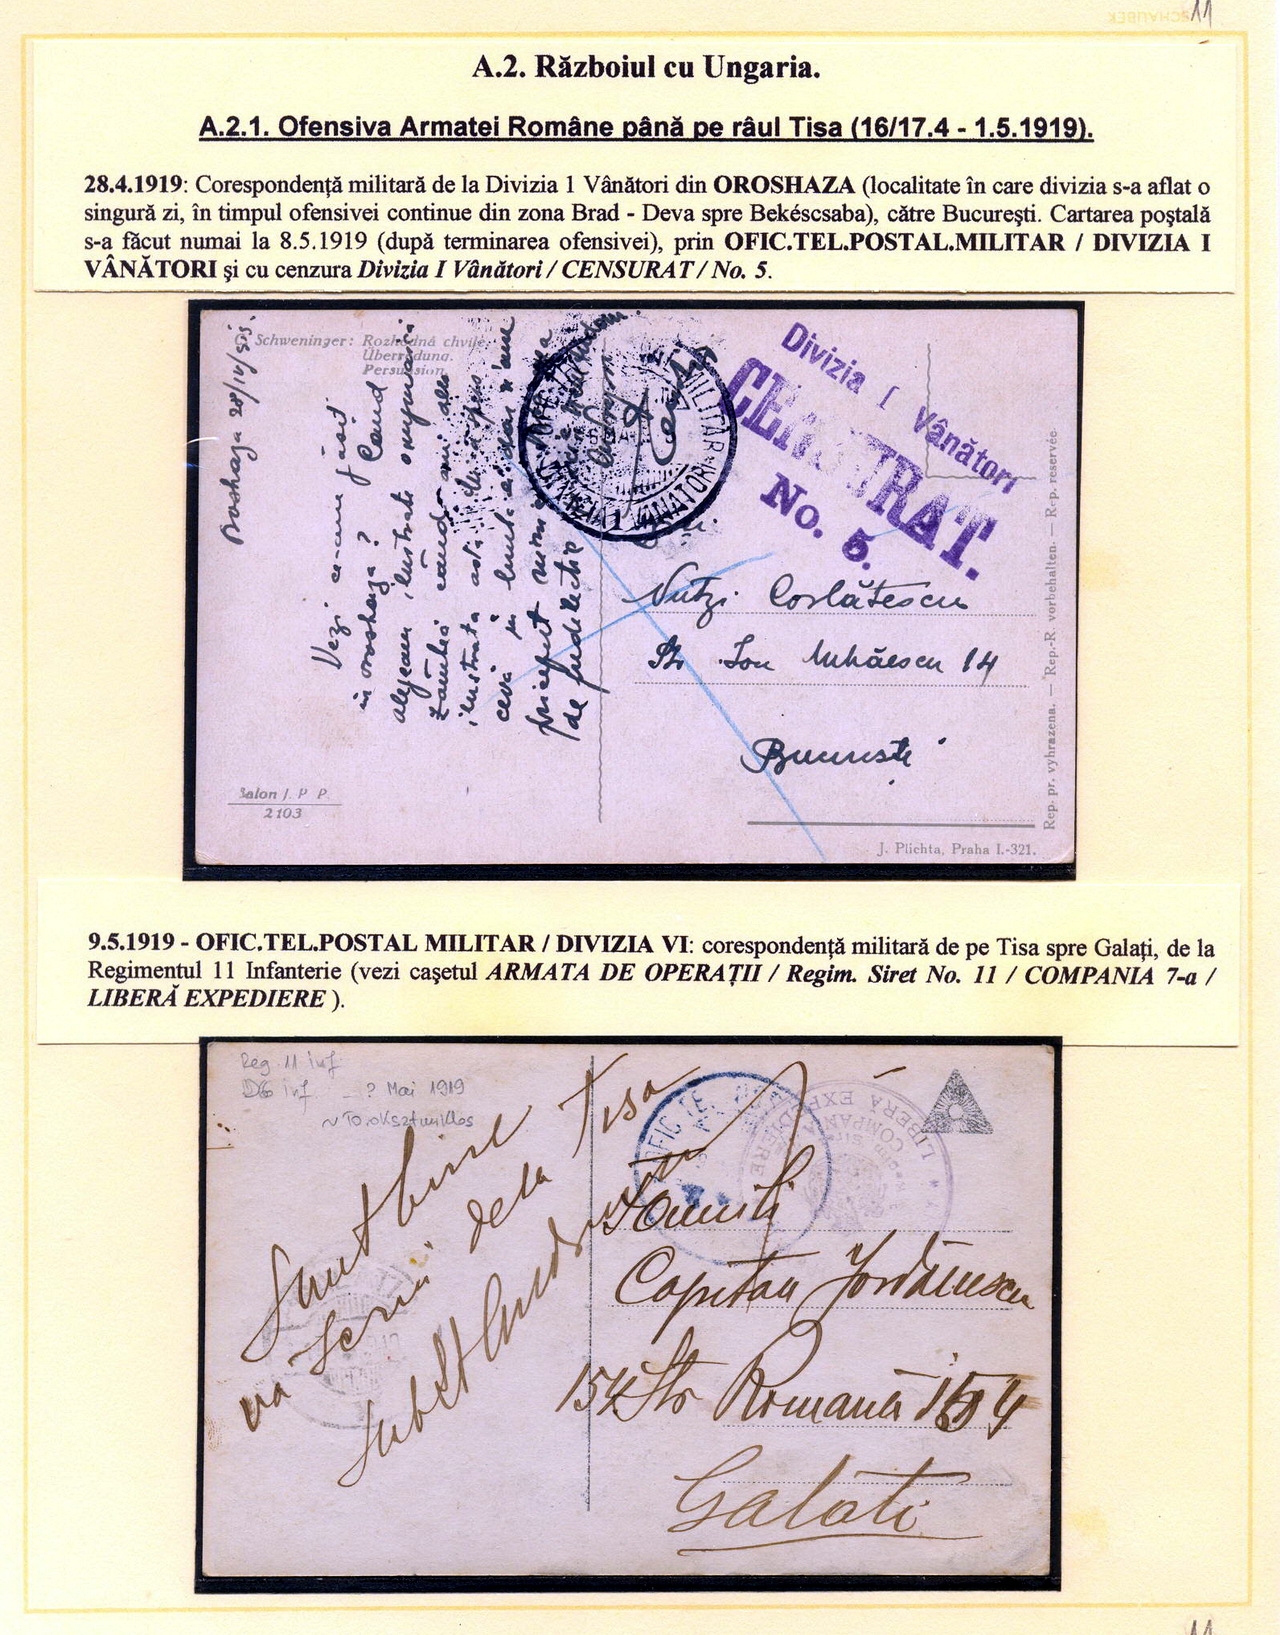 11
SCHAUBEK
A.2. Războiul cu Ungaria.
A.2.1. Ofensiva Armatei Române până pe râul Tisa (16/17.4 - 1.5.1919).
28.4.1919: Corespondență militară de la Divizia 1 Vânători din OROSHAZA (localitate în care divizia s-a aflat o
singură zi, în timpul ofensivei continue din zona Brad - Deva spre Bekéscsaba), către București. Cartarea poștală
s-a făcut numai la 8.5.1919 (după terminarea ofensivei), prin OFIC.TEL.POSTAL.MILITAR / DIVIZIA I
VÂNĂTORI și cu cenzura Divizia I Vânători / CENSURAT / No. 5.
Schweninger: Rozhodná chvíle.
Überredung.
Persuasion.
Oroshaza 28/IV/919.
Vezi ce-am găsit
in oroshaza? Cand
alegeam ilustrate
ilustrata asta
Divizia I Vânători
CENSURAT.
No. 5.
MILITAR
VANATORI
Nutzi Costătescu
Str Ion Mihăescu 14
București
Salon J. P. P.
2103
Rep. pr. vyhrazena. — Rep.-R. vorbehalten. — Rep. reservée.
J. Plichta, Praha I.-321.
9.5.1919 - OFIC.TEL.POSTAL MILITAR / DIVIZIA VI: corespondență militară de pe Tisa spre Galați, de la
Regimentul 11 Infanterie (vezi cașetul ARMATA DE OPERAȚII / Regim. Siret No. 11 / COMPANIA 7-a /
LIBERĂ EXPEDIERE ).
Reg. 11 inf
D6 inf ? Mai 1919
~ Töröksztmiklos
Sunt bine
va scriu dela Tisa
OFIC.TE
COMPANIA
LIBERĂ EXPEDIERE
Domnii
Capitan Iordănescu
154 Str Romană 154
Galati
11